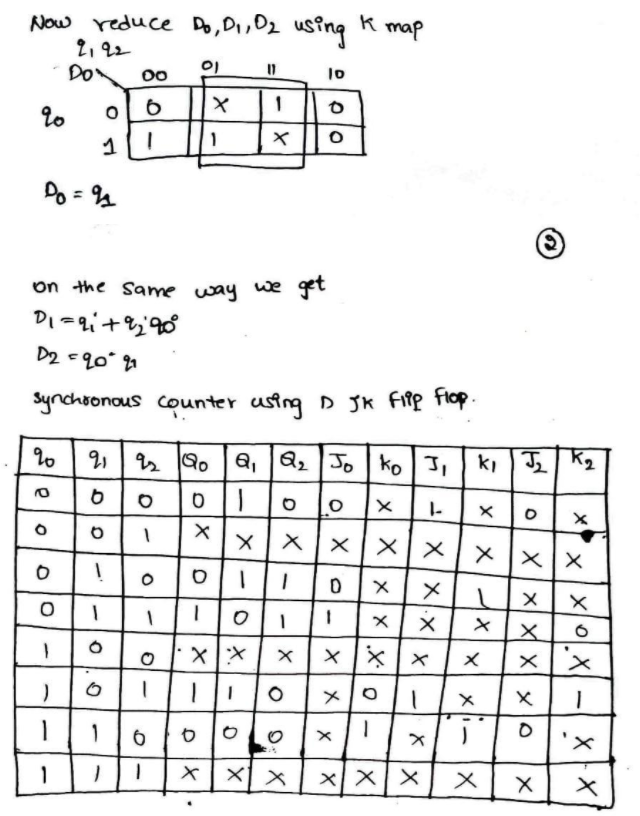 Now reduce D0, D1, D2 using K map
q1 q2
D0 00 01 11 10
q0 0 0 x 1 0
1 1 1 x 0
D0 = q1
2
on the same way we get
D1 = q1' + q2' q0°
D2 = q0° q1
Synchronous counter using D JK flip flop.
q0 q1 q2 Q0 Q1 Q2 J0 K0 J1 K1 J2 K2
0 0 0 0 1 0 0 x 1 x 0 x
0 0 1 x x x x x x x x x
0 1 0 0 1 1 0 x x 1 x x
0 1 1 1 0 1 1 x x x x 0
1 0 0 x x x x x x x x x
1 0 1 1 1 0 x 0 1 x x 1
1 1 0 0 0 0 x 1 x 1 0 x
1 1 1 x x x x x x x x x